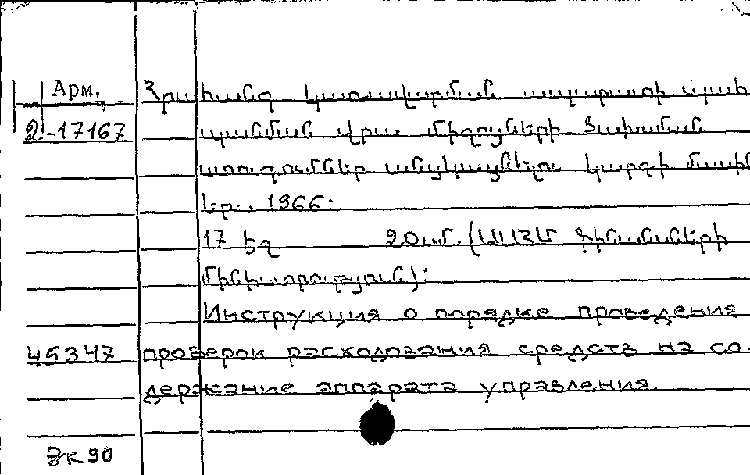 Арм. Հրահանգ կառավարման ապարատի պահ
2-17167 պանման վրա միջոցների ծախսման
ստուգումներ անցկացնելու կարգի մասին
Եր., 1966.
17 էջ 20սմ. (ՍՍՀՄ Ֆինանսների
մինիստրություն):
Инструкция о порядке проведения
45347 проверок расходования средств на со-
держание аппарата управления.
ЗК 90